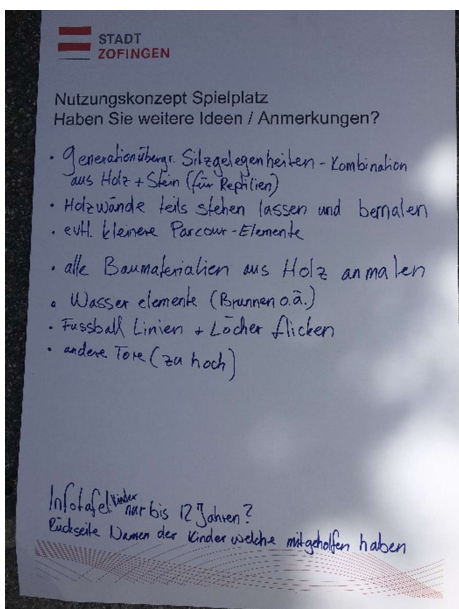 STADT
ZOFINGEN
Nutzungskonzept Spielplatz
Haben Sie weitere Ideen / Anmerkungen?
• Generationübergr. Sitzgelegenheiten - Kombination
aus Holz + Stein (für Reptilien)
• Holzwände teils stehen lassen und bemalen
• evtl. kleinere Parcour-Elemente
• alle Baumaterialien aus Holz anmalen
• Wasserelemente (Brunnen o.ä.)
• Fussball Linien + Löcher flicken
• andere Tore (zu hoch)
Infotafel Kinder nur bis 12 Jahren?
Rückseite Namen der Kinder welche mitgeholfen haben